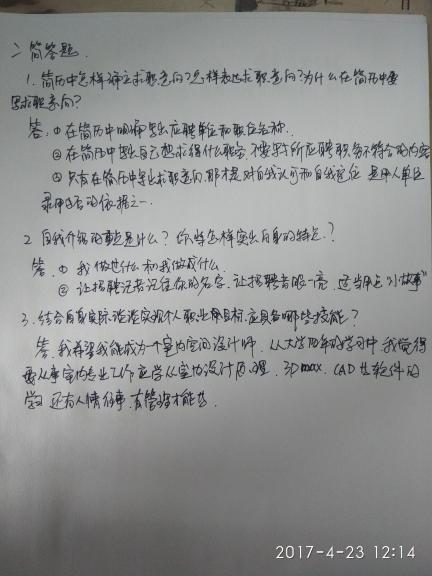 二 简答题.
1. 简历中怎样确立求职意向?怎样表达求职意向?为什么在简历中要
写求职意向?
答: ① 在简历中明确写出应聘单位和职位名称.
② 在简历中写出自己想求得什么职务. 不要写于所应聘职务不符合的内容
③ 只有在简历中写出求职意向, 那才是对自我认可和自我定位 是用人单位
录用与否的依据之一.
2 自我介绍的重点是什么? 你将怎样突出自身的特点?
答. ① 我做过什么和我做成什么.
② 让招聘记者记住你的名字. 让招聘者眼一亮. 适当用上"小故事"
3. 结合自身实际谈谈实现个人职业目标应具备哪些技能?
答. 我希望我能成为一个室内空间设计师. 从大学四年的学习中 我觉得
要从事室内专业工作应学从室内设计原理. 3Dmax. CAD 等软件的
学习 还有人情 有管 才能
2017-4-23 12:14